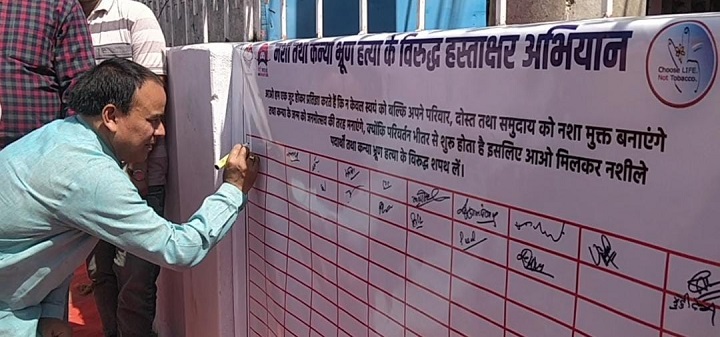 नशा तथा कन्या भ्रूण हत्या के विरुद्ध हस्ताक्षर अभियान
Choose LIFE.
Not Tobacco.
आओ हम एक जुट होकर प्रतिज्ञा करते है कि न केवल स्वयं को बल्कि अपने परिवार, दोस्त तथा समुदाय को नशा मुक्त बनाएंगे
तथा कन्या के जन्म को जन्मोत्सव की तरह मनाएंगे, क्योंकि परिवर्तन भीतर से शुरू होता है इसलिए आओ मिलकर नशीले
पदार्थों तथा कन्या भ्रूण हत्या के विरुद्ध शपथ लें।